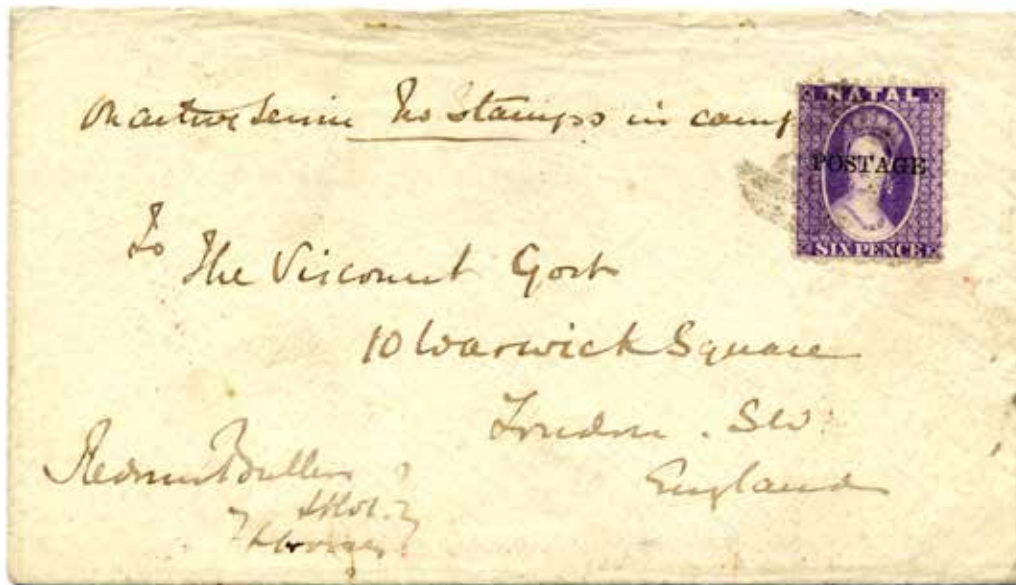 On active Service No Stamps in camp
NATAL
POSTAGE
SIX PENCE
To
The Viscount Gort
10 Warwick Square
London. SW.
England
Redvers Buller